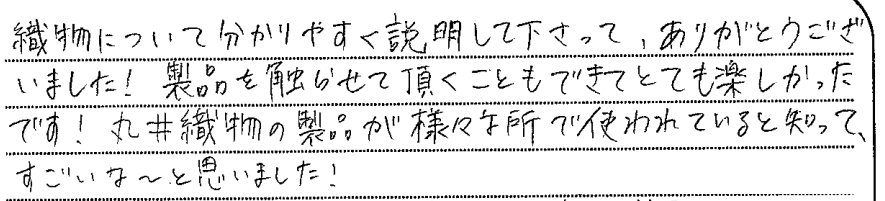 織物について分かりやすく説明して下さって、ありがとうござ
いました！ 製品を触らせて頂くこともできてとても楽しかった
です！ 丸井織物の製品が様々な所で使われていると知って、
すごいな〜と思いました！